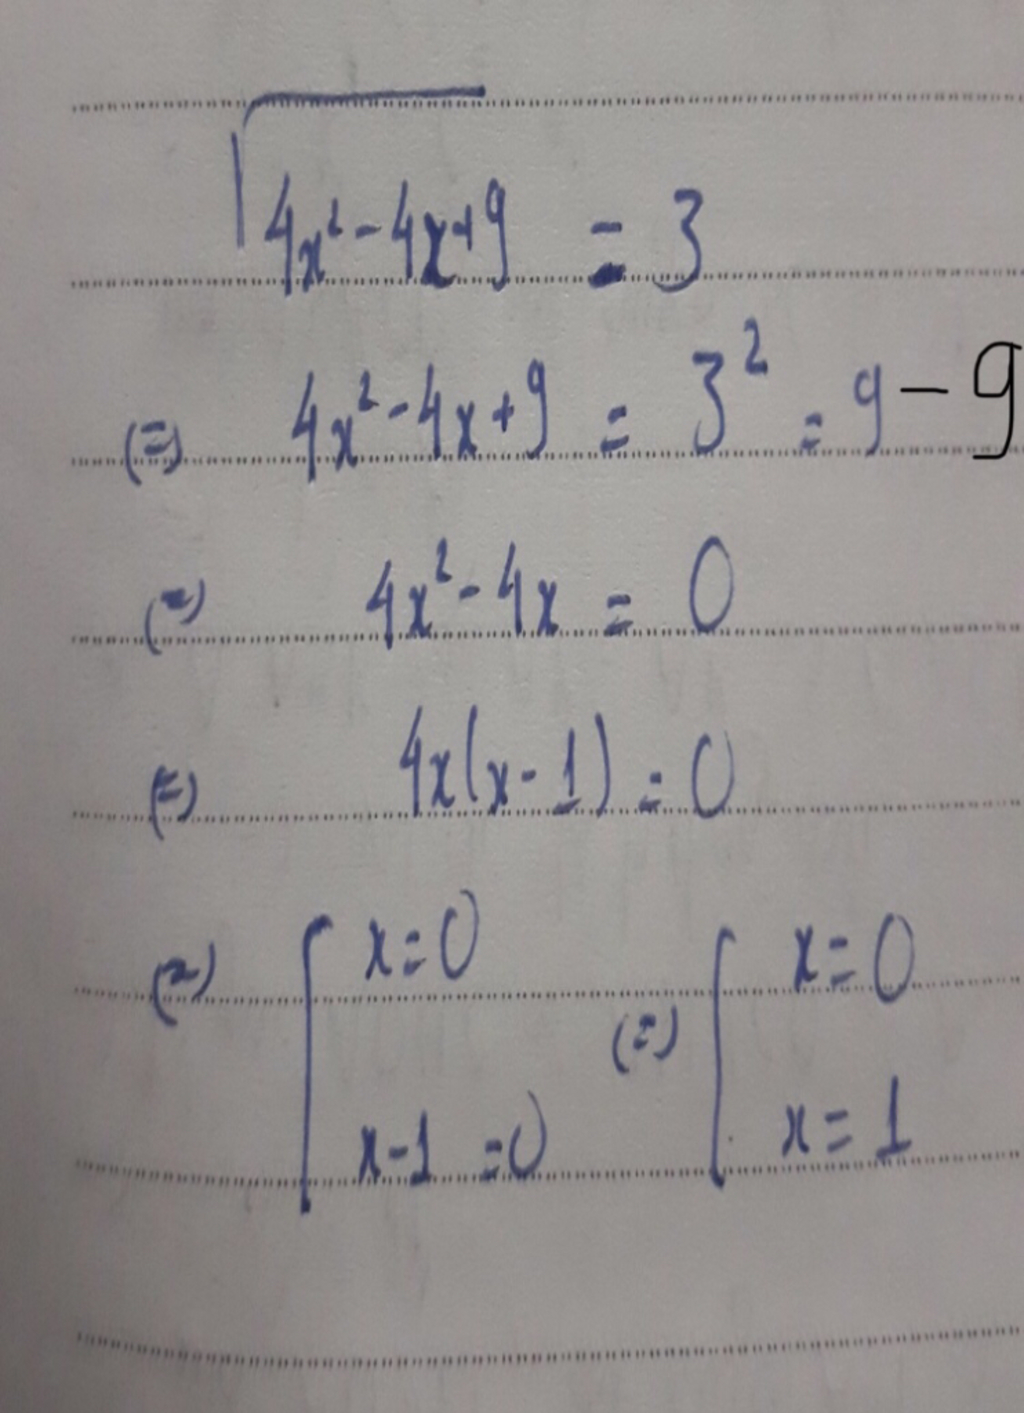 √4x² - 4x + 9 = 3
(=) 4x² - 4x + 9 = 3² = 9 - 9
(=) 4x² - 4x = 0
(=) 4x(x - 1) = 0
(=) [ x = 0 (=) [ x = 0
x - 1 = 0 x = 1